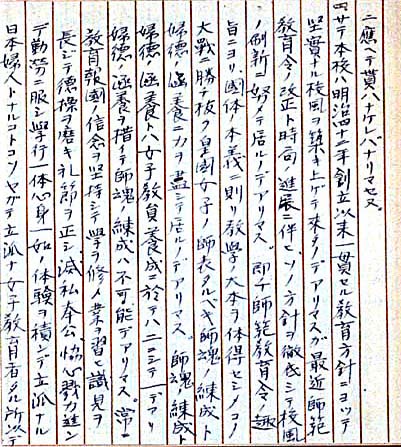 ニ應ヘテ貰ハナケレバナリマセヌ。
サテ本校ハ明治四十二年創立以来一貫セル教育方針ニヨッテ
堅實ナル校風ヲ築キ上ゲテ来タノデアリマスガ最近師範
教育令ノ改正ト時局ノ進展ニ伴ヒソノ方針ヲ徹底シテ校風
ノ刷新ニ努メテ居ルノデアリマス。即チ師範教育令ノ趣
旨ニヨリ國体ノ本義ニ則リ教學ノ大本ヲ体得セシメコノ
大戰ニ勝チ抜ク皇國女子ノ師表タルベキ師魂ノ練成ト
婦徳ノ涵養ニ力ヲ盡シテ居ルノデアリマス。師魂ノ練成ト
婦徳ノ涵養トハ女子教員養成ニ於テハ二ニシテ一デアリ
婦徳ノ涵養ヲ措テ師魂ノ練成ハ不可能デアリマス。常ニ
教育報國ノ信念ヲ堅持シテ學ヲ修メ業ヲ習ヒ識見ヲ
長ジテ徳操ヲ磨キ礼節ヲ正シ滅私奉公協心戮力進ン
デ勤勞ニ服シ學行一体心身一如ノ体験ヲ積ンデ立派ナル
日本婦人トナルコトコソヤガテ立派ナ女子教育者タル所以デ